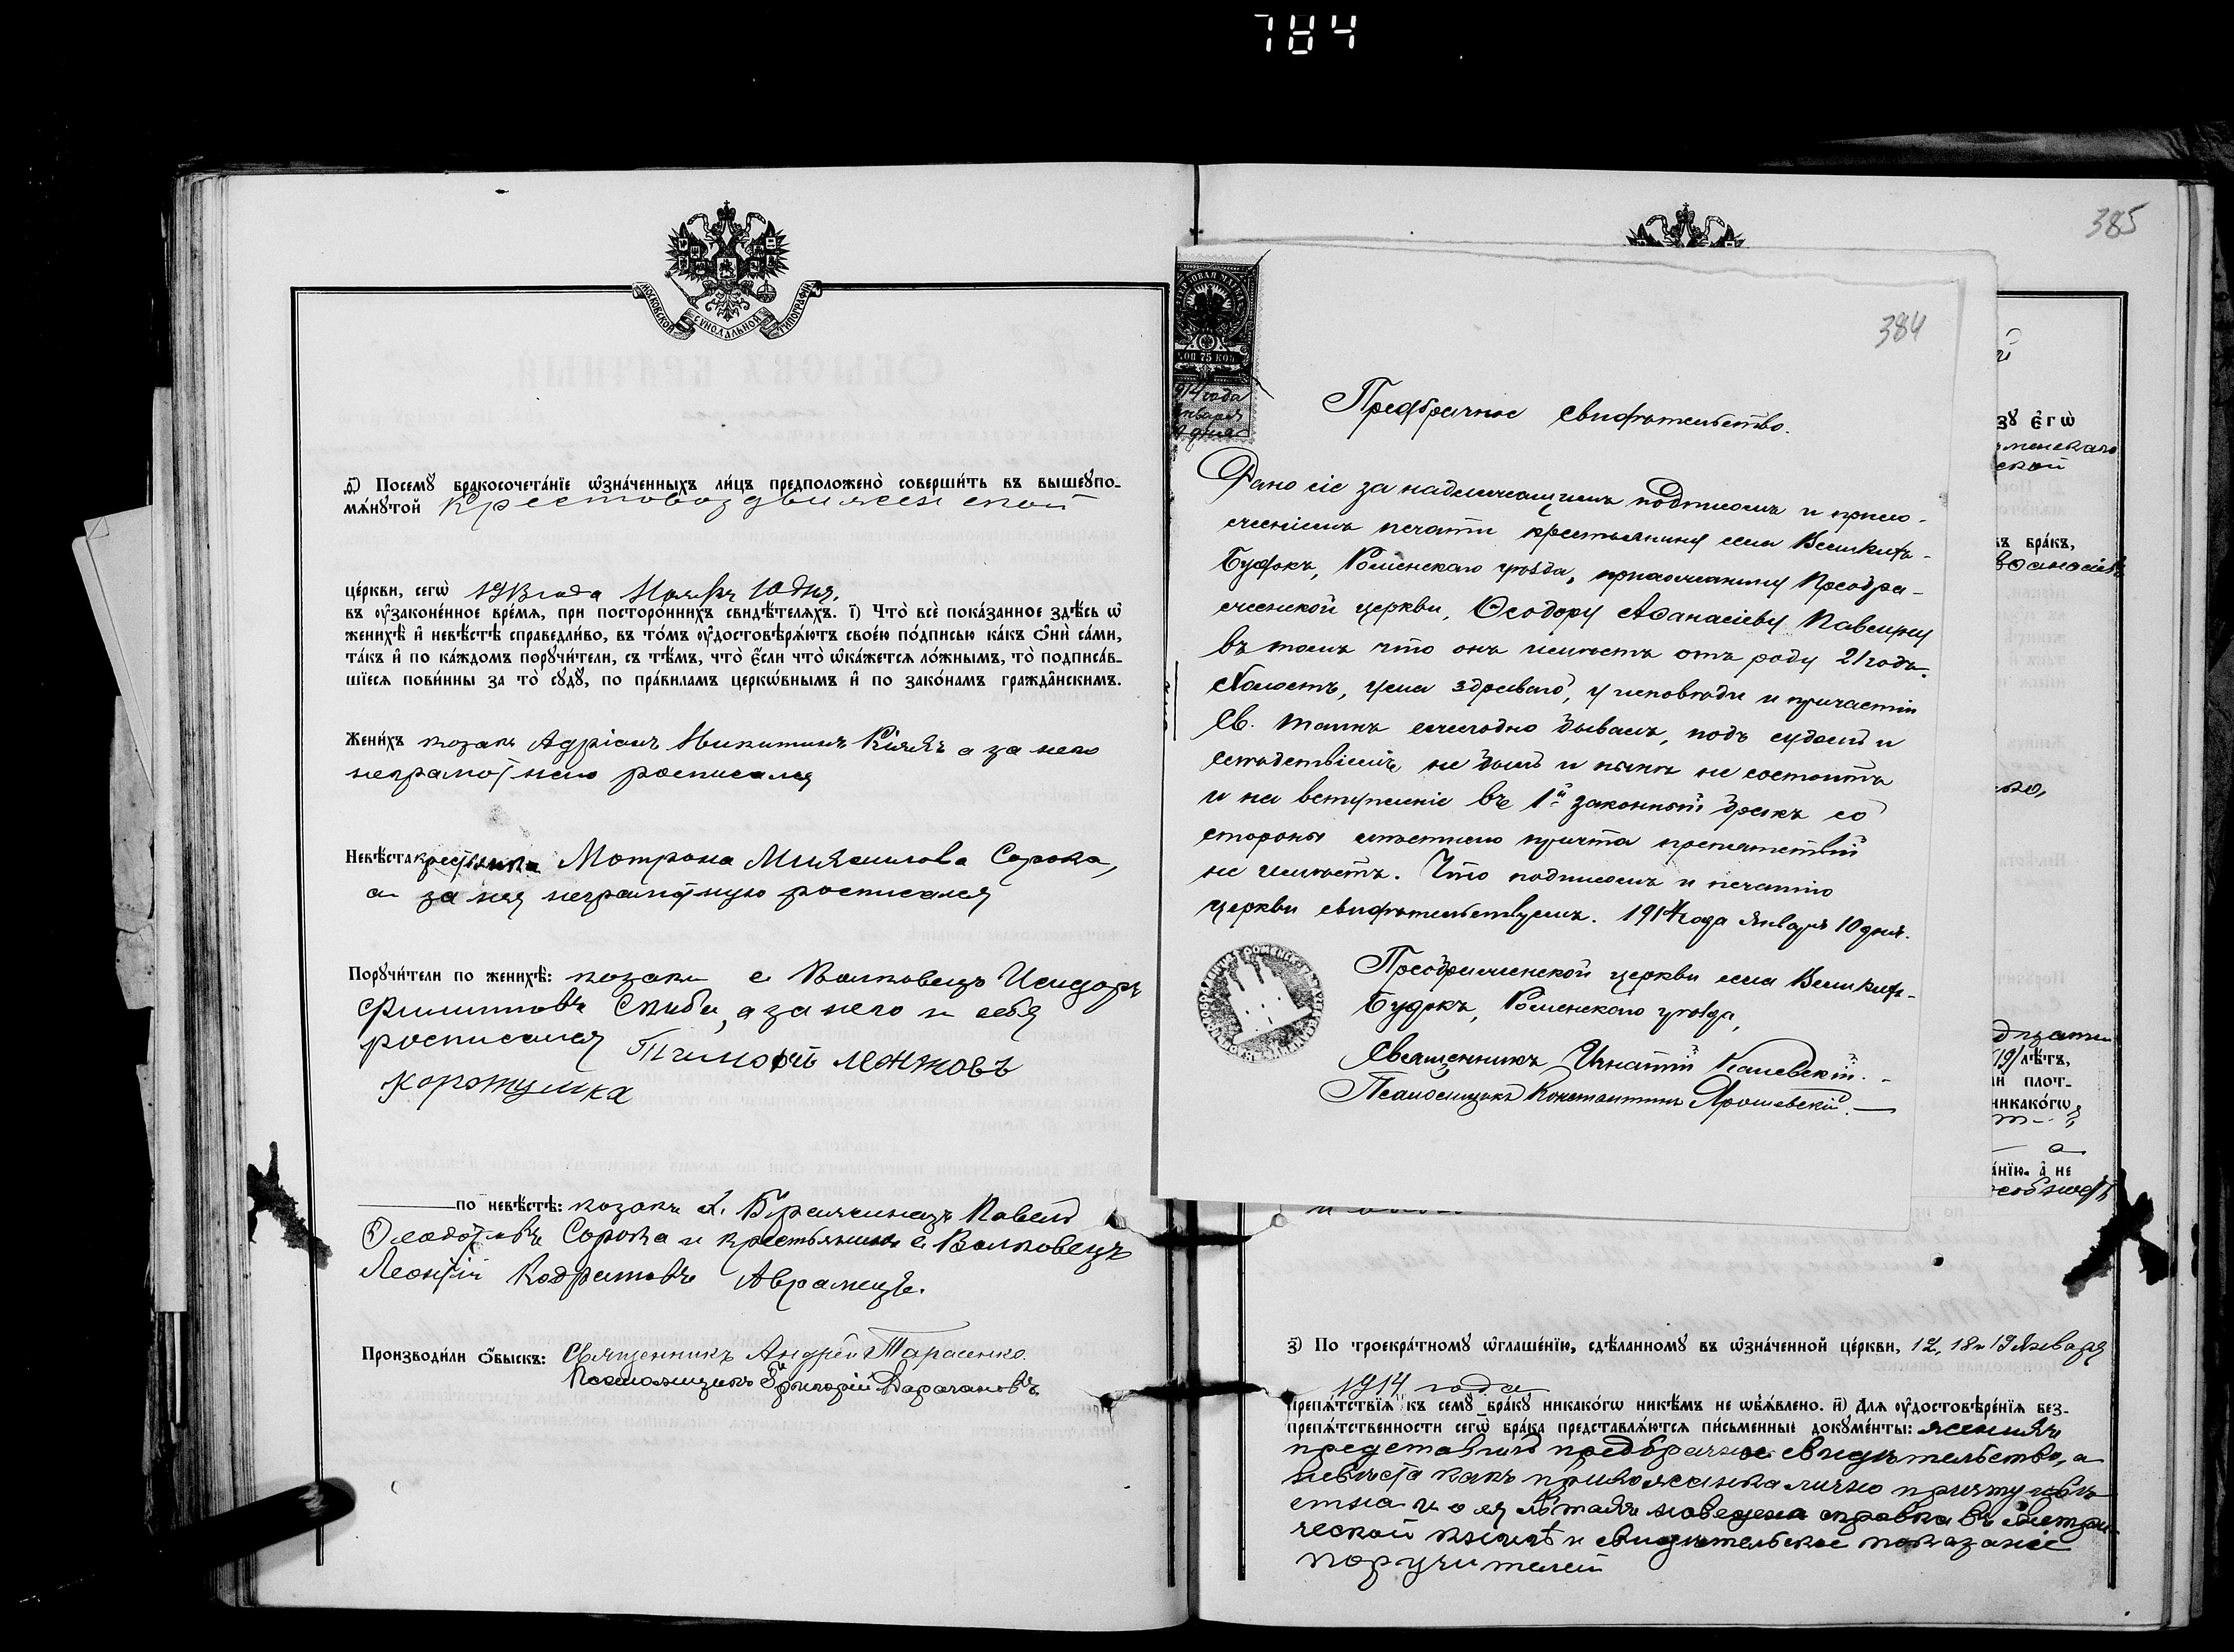 784
МОСКОВСКОЙ СУНОДАЛЬНОЙ ТИПОГРАФІИ
Посемꙋ бракосочета́нїе ѡ҆зна́ченныхъ ли́цъ предположено̀ соверши́ть въ вышеꙋпо-
мѧ́нꙋтой Крестовоздвиженской
це́ркви, сегѡ̀ 1913 года Ноябр 10 дня.
въ ᲂу҆законе́нное вре́мѧ, при посторо́ннихъ свидѣ́телѧхъ. і҃) Что̀ всѐ пока́занное здѣ́сь ѡ҆
женихѣ̀ и҆ невѣ́стѣ справедли́во, въ то́мъ ᲂу҆достовѣрѧ́ютъ свое́ю по́дписью ка́къ ѻ҆нѝ са́ми,
та́къ и҆ по ка́ждомъ порꙋчи́тели, съ тѣ́мъ, что̀ є҆́сли что̀ ѡ҆ка́жетсѧ ло́жнымъ, то̀ подписа́в-
шїесѧ пови́нны за то̀ сꙋдꙋ̀, по пра́виламъ церко́внымъ и҆ по зако́намъ гражда̑нскимъ.
Жени́хъ козакъ Адріанъ Никитинъ а за него
неграмотнаго росписался
Невѣ́ста крестьянка Мотрона Сорока,
а за нея неграмотную росписался
Порꙋчи́тели по женихѣ̀: козаки с Волковецъ Исидоръ
Филипповъ а за него и себя
росписался Тимофей
Коротушка
по невѣ́стѣ: козакъ х. Павелъ
Ѳеодотовъ Сорока и крестьянинъ с Волковецъ
Леонтій Кодратовъ Аврамецъ.
Производи́ли ѻ҆́быскъ: Священникъ Андрей Тарасенко.
Псаломщикъ Григорій
385
384
КОП 75 КОП.
1914 года
Января
дня
Предбрачное свидѣтельство.
Дано сіе за надлежащимъ подписомъ и прило-
женіемъ печати крестьянину села Великихъ-
Будокъ, Роменскаго уѣзда, прихожанину Преобра-
женской церкви, Ѳеодору Аѳанасіеву
въ томъ что онъ имѣетъ отъ роду 21 годъ.
Холостъ, ума здраваго, у исповѣди и причастія
Св. Таинъ ежегодно бывалъ, подъ судомъ и
слѣдствіемъ не былъ и нынѣ не состоитъ
и на вступленіе въ 1й законный бракъ со
стороны мѣстнаго причта препятствій
не имѣетъ. Что подписомъ и печатію
церкви свидѣтельствуемъ. 1914 года Января 10 дня.
Преображенской церкви села Великихъ-
Будокъ, Роменскаго уѣзда,
Священникъ Игнатій
Псаломщикъ Константинъ Ярошевскій.
зꙋ є҆гѡ̀
въ бра́къ,
19/ лѣ́тъ,
й плот-
никако́гѡ
а́нїю. а҆ не
з҃) По троекра́тномꙋ ѡ҆глаше́нїю, сдѣ́ланномꙋ въ ѡ҆зна́ченной це́ркви, 12, 18 и 19 Января
1914 года
препѧ́тствїѧ къ семꙋ̀ бра́кꙋ никако́гѡ никѣ́мъ не ѡ҆б̾ѧ́влено. и҃) Длѧ ᲂу҆достовѣре́нїѧ без-
препѧ́тственности сегѡ̀ бра́ка представлѧ́ютсѧ пи́сьменные докꙋме́нты: женихъ
представилъ предбрачное свидѣтельство, а
невѣста какъ прихожанка лично причту извѣ
стна и о ея лѣтахъ наведена справка въ метри-
ческой книгѣ и свидѣтельское показаніе
поручителей